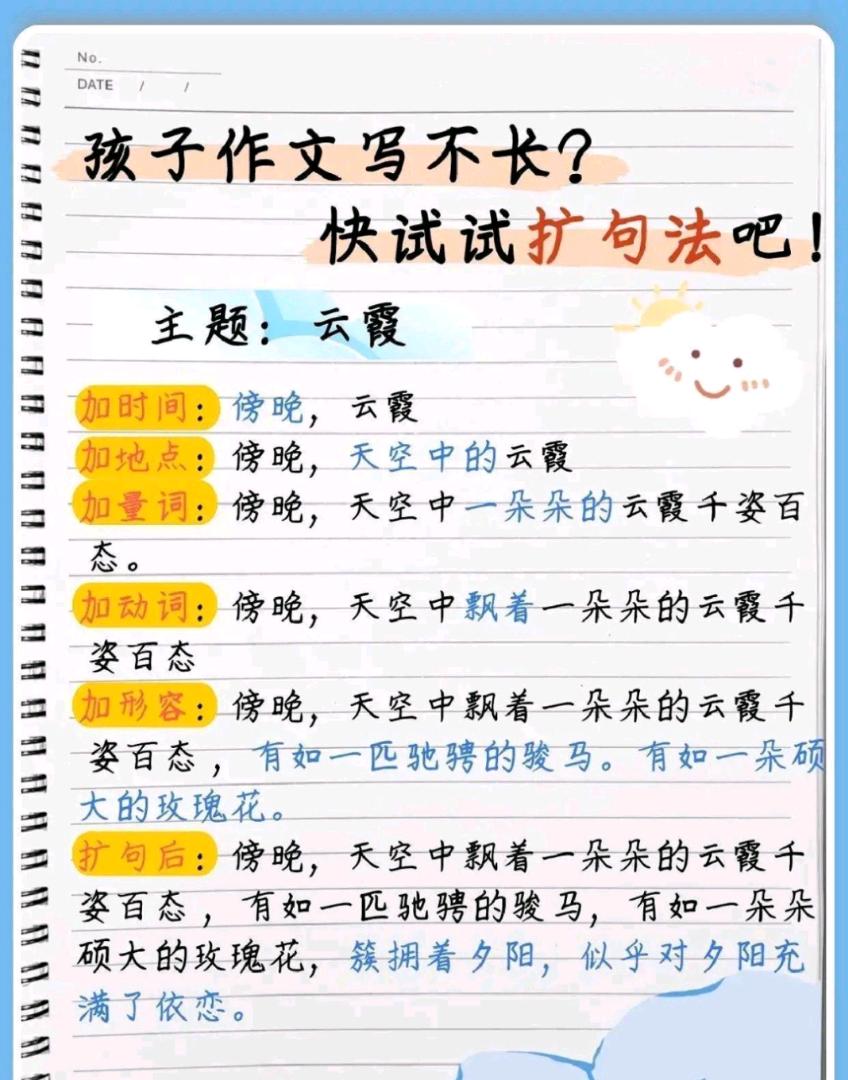 No.
DATE / /
孩子作文写不长?
快试试扩句法吧!
主题：云霞
加时间：傍晚，云霞
加地点：傍晚，天空中的云霞
加量词：傍晚，天空中一朵朵的云霞千姿百
态。
加动词：傍晚，天空中飘着一朵朵的云霞千
姿百态
加形容：傍晚，天空中飘着一朵朵的云霞千
姿百态，有如一匹驰骋的骏马。有如一朵硕
大的玫瑰花。
扩句后：傍晚，天空中飘着一朵朵的云霞千
姿百态，有如一匹驰骋的骏马，有如一朵朵
硕大的玫瑰花，簇拥着夕阳，似乎对夕阳充
满了依恋。